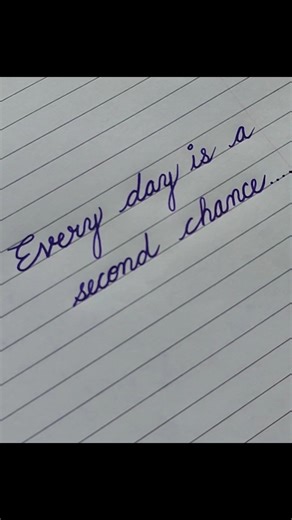 Every day is a
second chance.....